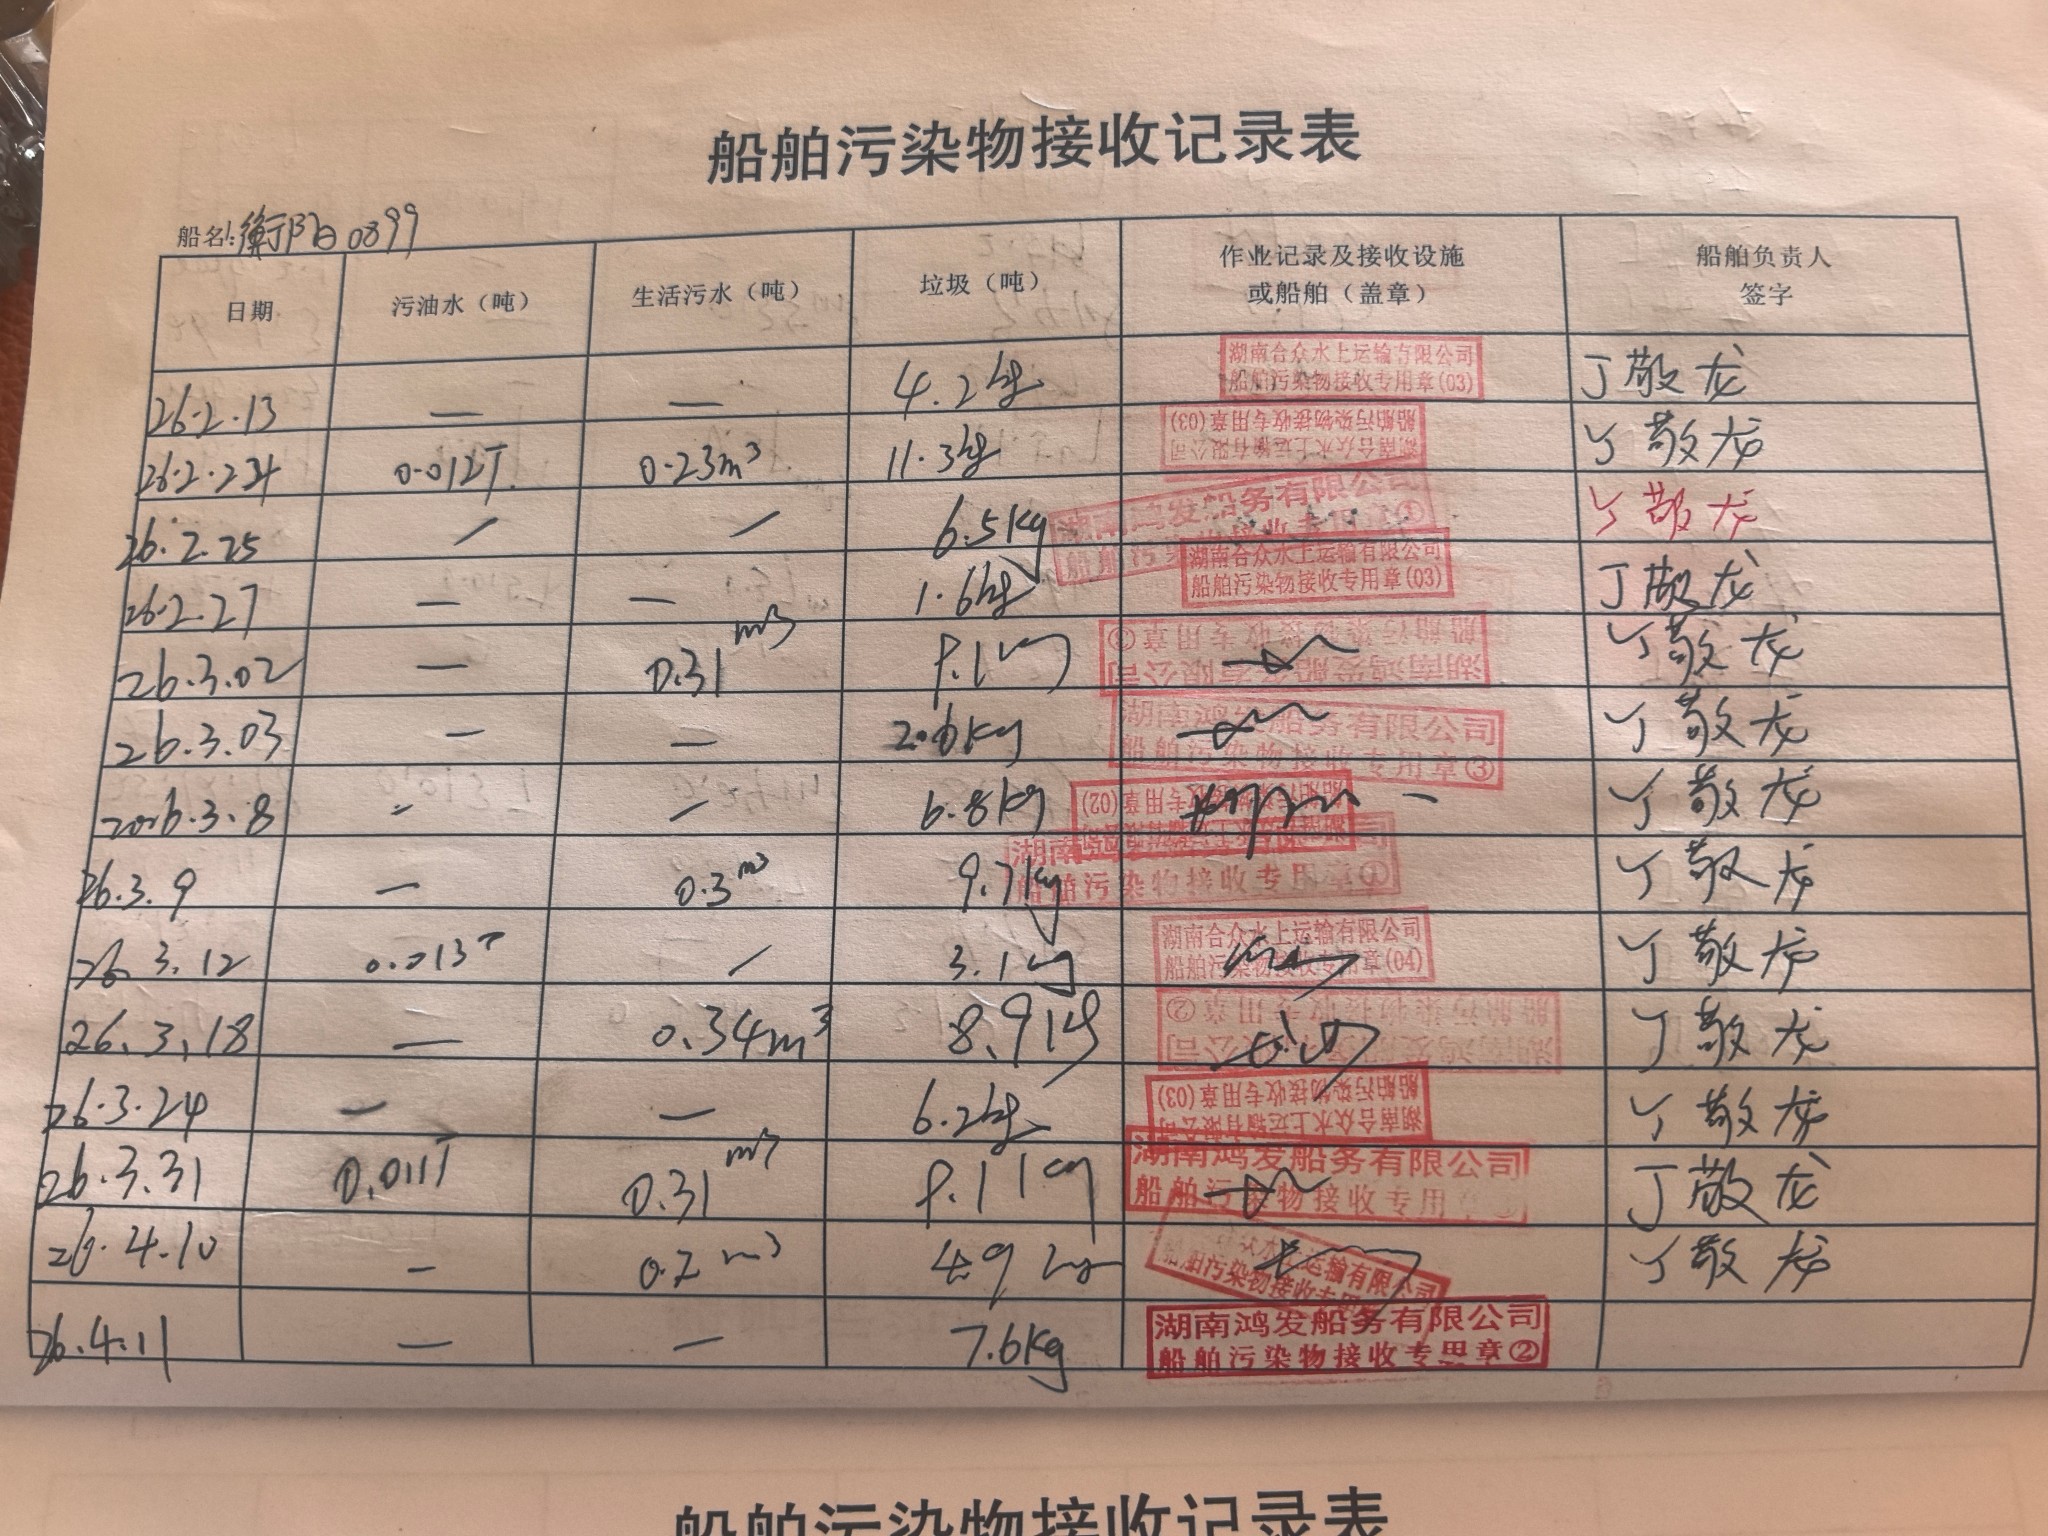 船舶污染物接收记录表
船名: 衡阳0899
日期 污油水（吨） 生活污水（吨） 垃圾（吨） 作业记录及接收设施或船舶（盖章） 船舶负责人签字
26.2.13 — — 4.2kg 湖南合众水上运输有限公司 船舶污染物接收专用章(03) 丁敬龙
0.012T 0.23m³ 11.3kg 湖南合众水上运输有限公司 船舶污染物接收专用章(03) 丁敬龙
26.2.25 / / 6.5kg 湖南鸿发船务有限公司 船舶污染物接收专用章① 丁敬龙
26.2.27 — — 1.6kg 湖南合众水上运输有限公司 船舶污染物接收专用章(03) 丁敬龙
26.3.02 — 0.31m³ 湖南鸿发船务有限公司 船舶污染物接收专用章 丁敬龙
26.3.03 — — 湖南鸿发船务有限公司 船舶污染物接收专用章③ 丁敬龙
2026.3.8 - - 6.8kg 船舶污染物接收专用章(02) 丁敬龙
26.3.9 — 0.3m³ 9.7kg 湖南 船舶污染物接收专用章① 丁敬龙
26.3.12 0.013T / 3.1kg 湖南合众水上运输有限公司 船舶污染物接收专用章(04) 丁敬龙
26.3.18 — 0.34m³ 8.9kg 湖南鸿发船务有限公司 船舶污染物接收专用章② 丁敬龙
26.3.24 — — 6.2kg 湖南合众水上运输有限公司 船舶污染物接收专用章(03) 丁敬龙
26.3.31 0.011T 0.31m³ 湖南鸿发船务有限公司 船舶污染物接收专用章 丁敬龙
26.4.10 - 0.2m³ 4.9kg 合众水上运输有限公司 船舶污染物接收专用 丁敬龙
26.4.11 — — 7.6kg 湖南鸿发船务有限公司 船舶污染物接收专用章②
船舶污染物接收记录表